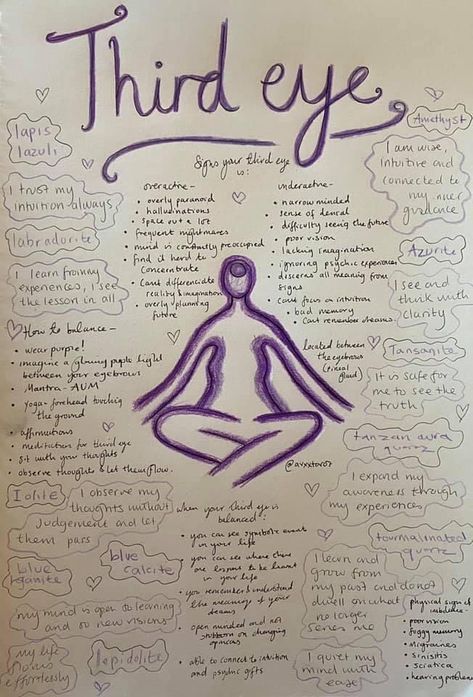 Third eye
Amethyst
lapis
lazuli
I am wise,
intuitive and
connected to
my inner
guidance
I trust my
intuition always
labradorite
I learn from my
experiences, I see
the lesson in all
Signs your third eye
is:
overactive -
• overly paranoid
• hallucinations
• space out a lot
frequent nightmares
• mind is constantly preoccupied
find it hard to
concentrate
• Cant differenciate
reality & imagination
• overly planning
future
underactive -
• narrow minded
sense of denial
• difficulty seeing the future
• poor vision
• lacking imagination
• ignoring psychic experiences
• discerns all meaning from
signs
• Cant focus on intuition
• bad memory
• Cant remember dreams.
Azurite
I see and
think with
clarity
Tansanite
It is safe for
me to see the
truth
located between
the eyebrows
(pineal
gland)
How to balance -
• wear purple!
• imagine a glowing purple light
between your eyebrows
• Mantra - AUM
• yoga - forehead touching
the ground
• affirmations
• meditation for third eye
• sit with your thoughts
• observe thoughts & let them flow.
@avxxtarot
tanzan aura
quartz
I expand my
awareness through
my experiences
Iolite
I observe my
thoughts without
judgement and let
them pass
blue
calcite
my mind is open to learning
and to new visions
my life
flows
effortlessly
lepidolite
when your third eye is
balanced:
• you can see symbolic event
in your life
• you can see where there
are lessons to be learnt in
in your life
• you remember & understand
the meaning of your
• open minded and not
stubborn on changing
opinions
• able to connect to intuition
and psychic gifts
tourmalinated
quartz
I learn and
grow from
my past and do not
dwell on what
no longer
serves me
I quiet my
mind with
ease
physical signs of
imbalance -
• poor vision
• foggy memory
• migraines
• sinisitis
• sciatica
• hearing problems